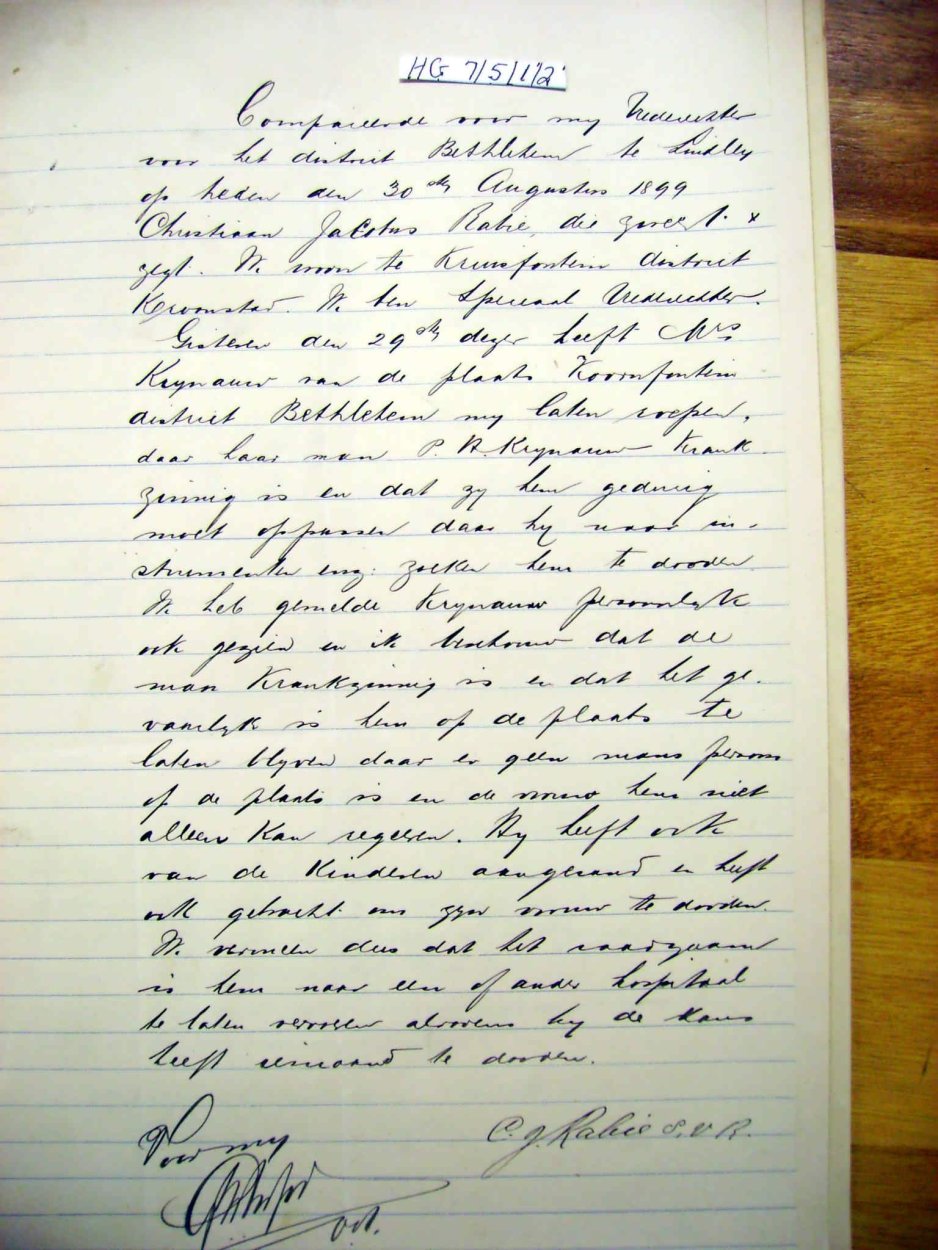 HG 7/5/1/2
Compareerde voor my Vrederechter
voor het district Bethlehem te Lindley
op heden den 30ste Augustus 1899
Christiaan Jacobus Rabie, die zweert &
zegt. Ik woon te Kruisfontein district
Kroonstad. Ik ben Speciaal Vrederechter.
Gisteren den 29ste dezer heeft Mrs
Krynauw van de plaats Hoornfontein
district Bethlehem my laten roepen,
daar haar man P. A. Krynauw Krank
zinnig is en dat zy hem gedurig
moet oppassen daar hy naar in-
strumenten enz: zoeken hem te dooden
Ik heb gemelde Krynauw persoonlyk
ook gezien en ik beschouw dat de
man Krankzinnig is en dat het ge-
vaarlyk is hem op de plaats te
laten blyven daar er geen mans persoon
op de plaats is en de vrouw hem niet
alleen kan regeeren. Hy heeft ook
van de Kinderen aangerand en heeft
ook getracht om zyn vrouw te dooden.
Ik vermeen dus dat het raadzaam
is hem naar een of ander hospitaal
te laten vervoeren alvorens hy de kans
heeft iemand te dooden.
C. J. Rabie S.V.R.
Voor my